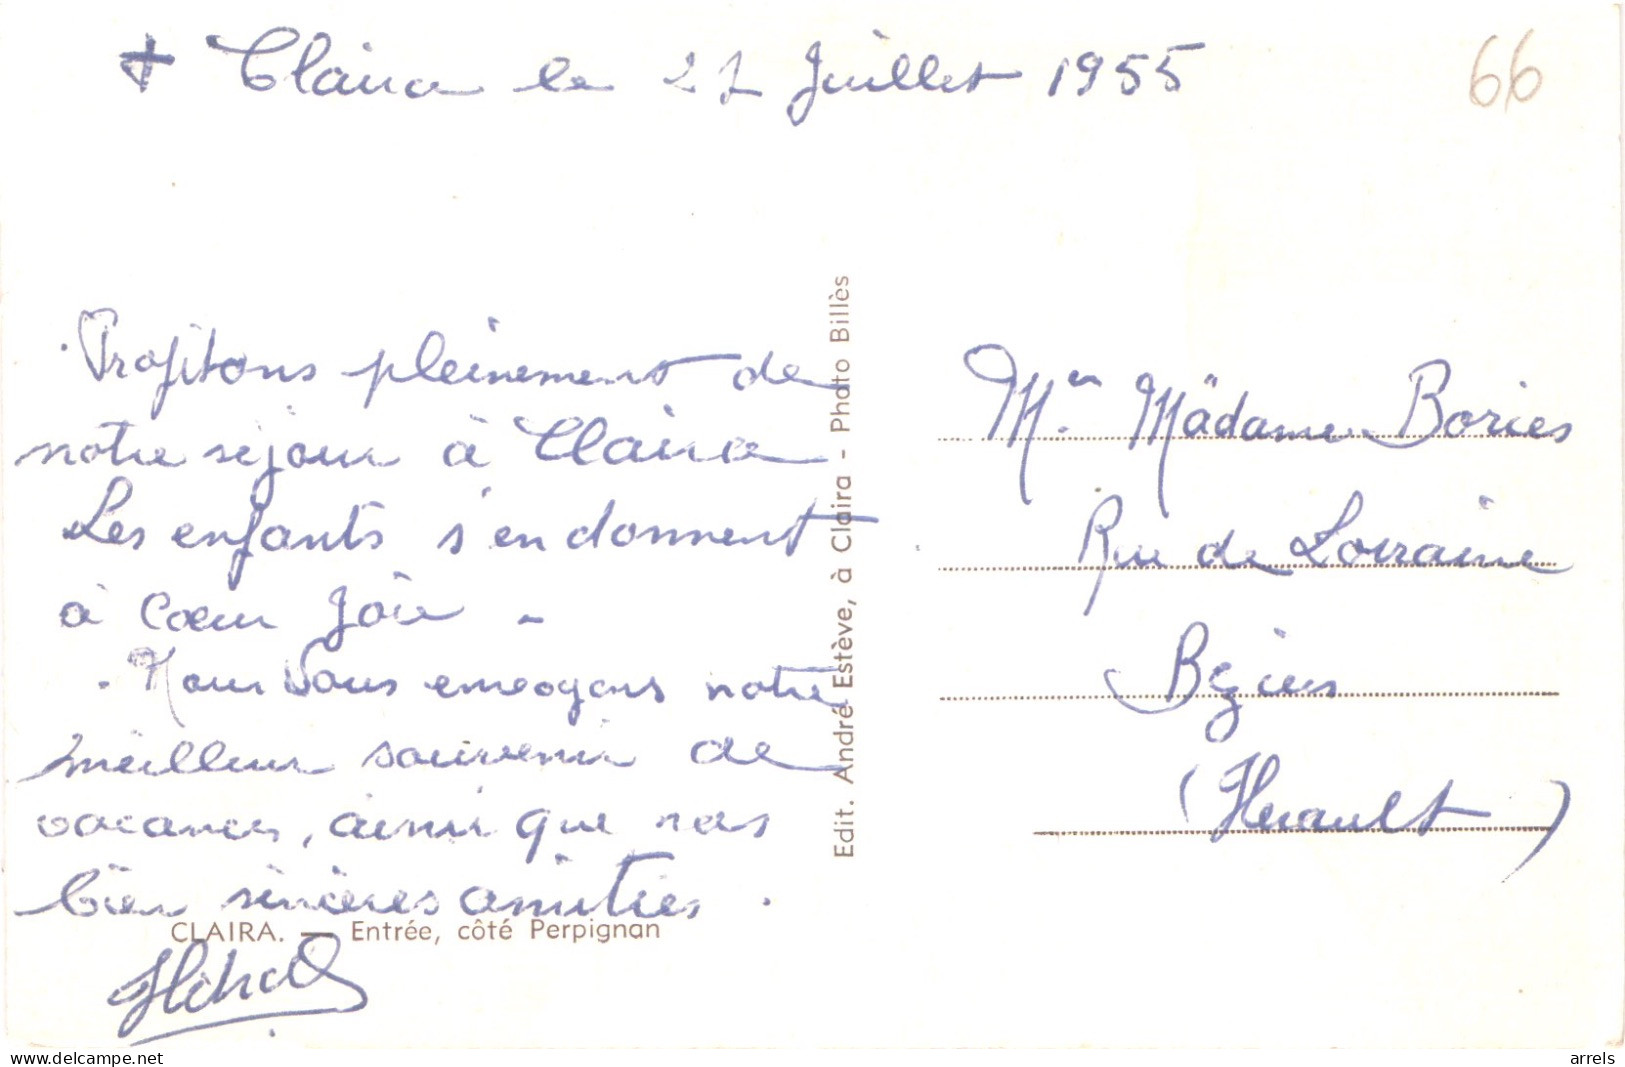 + Claira le 27 Juillet 1955
66
Profitons pleinement de
notre séjour à Claira
Les enfants s'en donnent
à Cœur Joie -
- Nous Vous envoyons notre
meilleur souvenir de
vacances, ainsi que nos
bien sincères amitiés.
CLAIRA. — Entrée, côté Perpignan
Edit. André Estève, à Claira - Photo Billès
Mr. Madame Bories
Rue de Lorraine
Béziers
(Herault)
www.delcampe.net
arrels